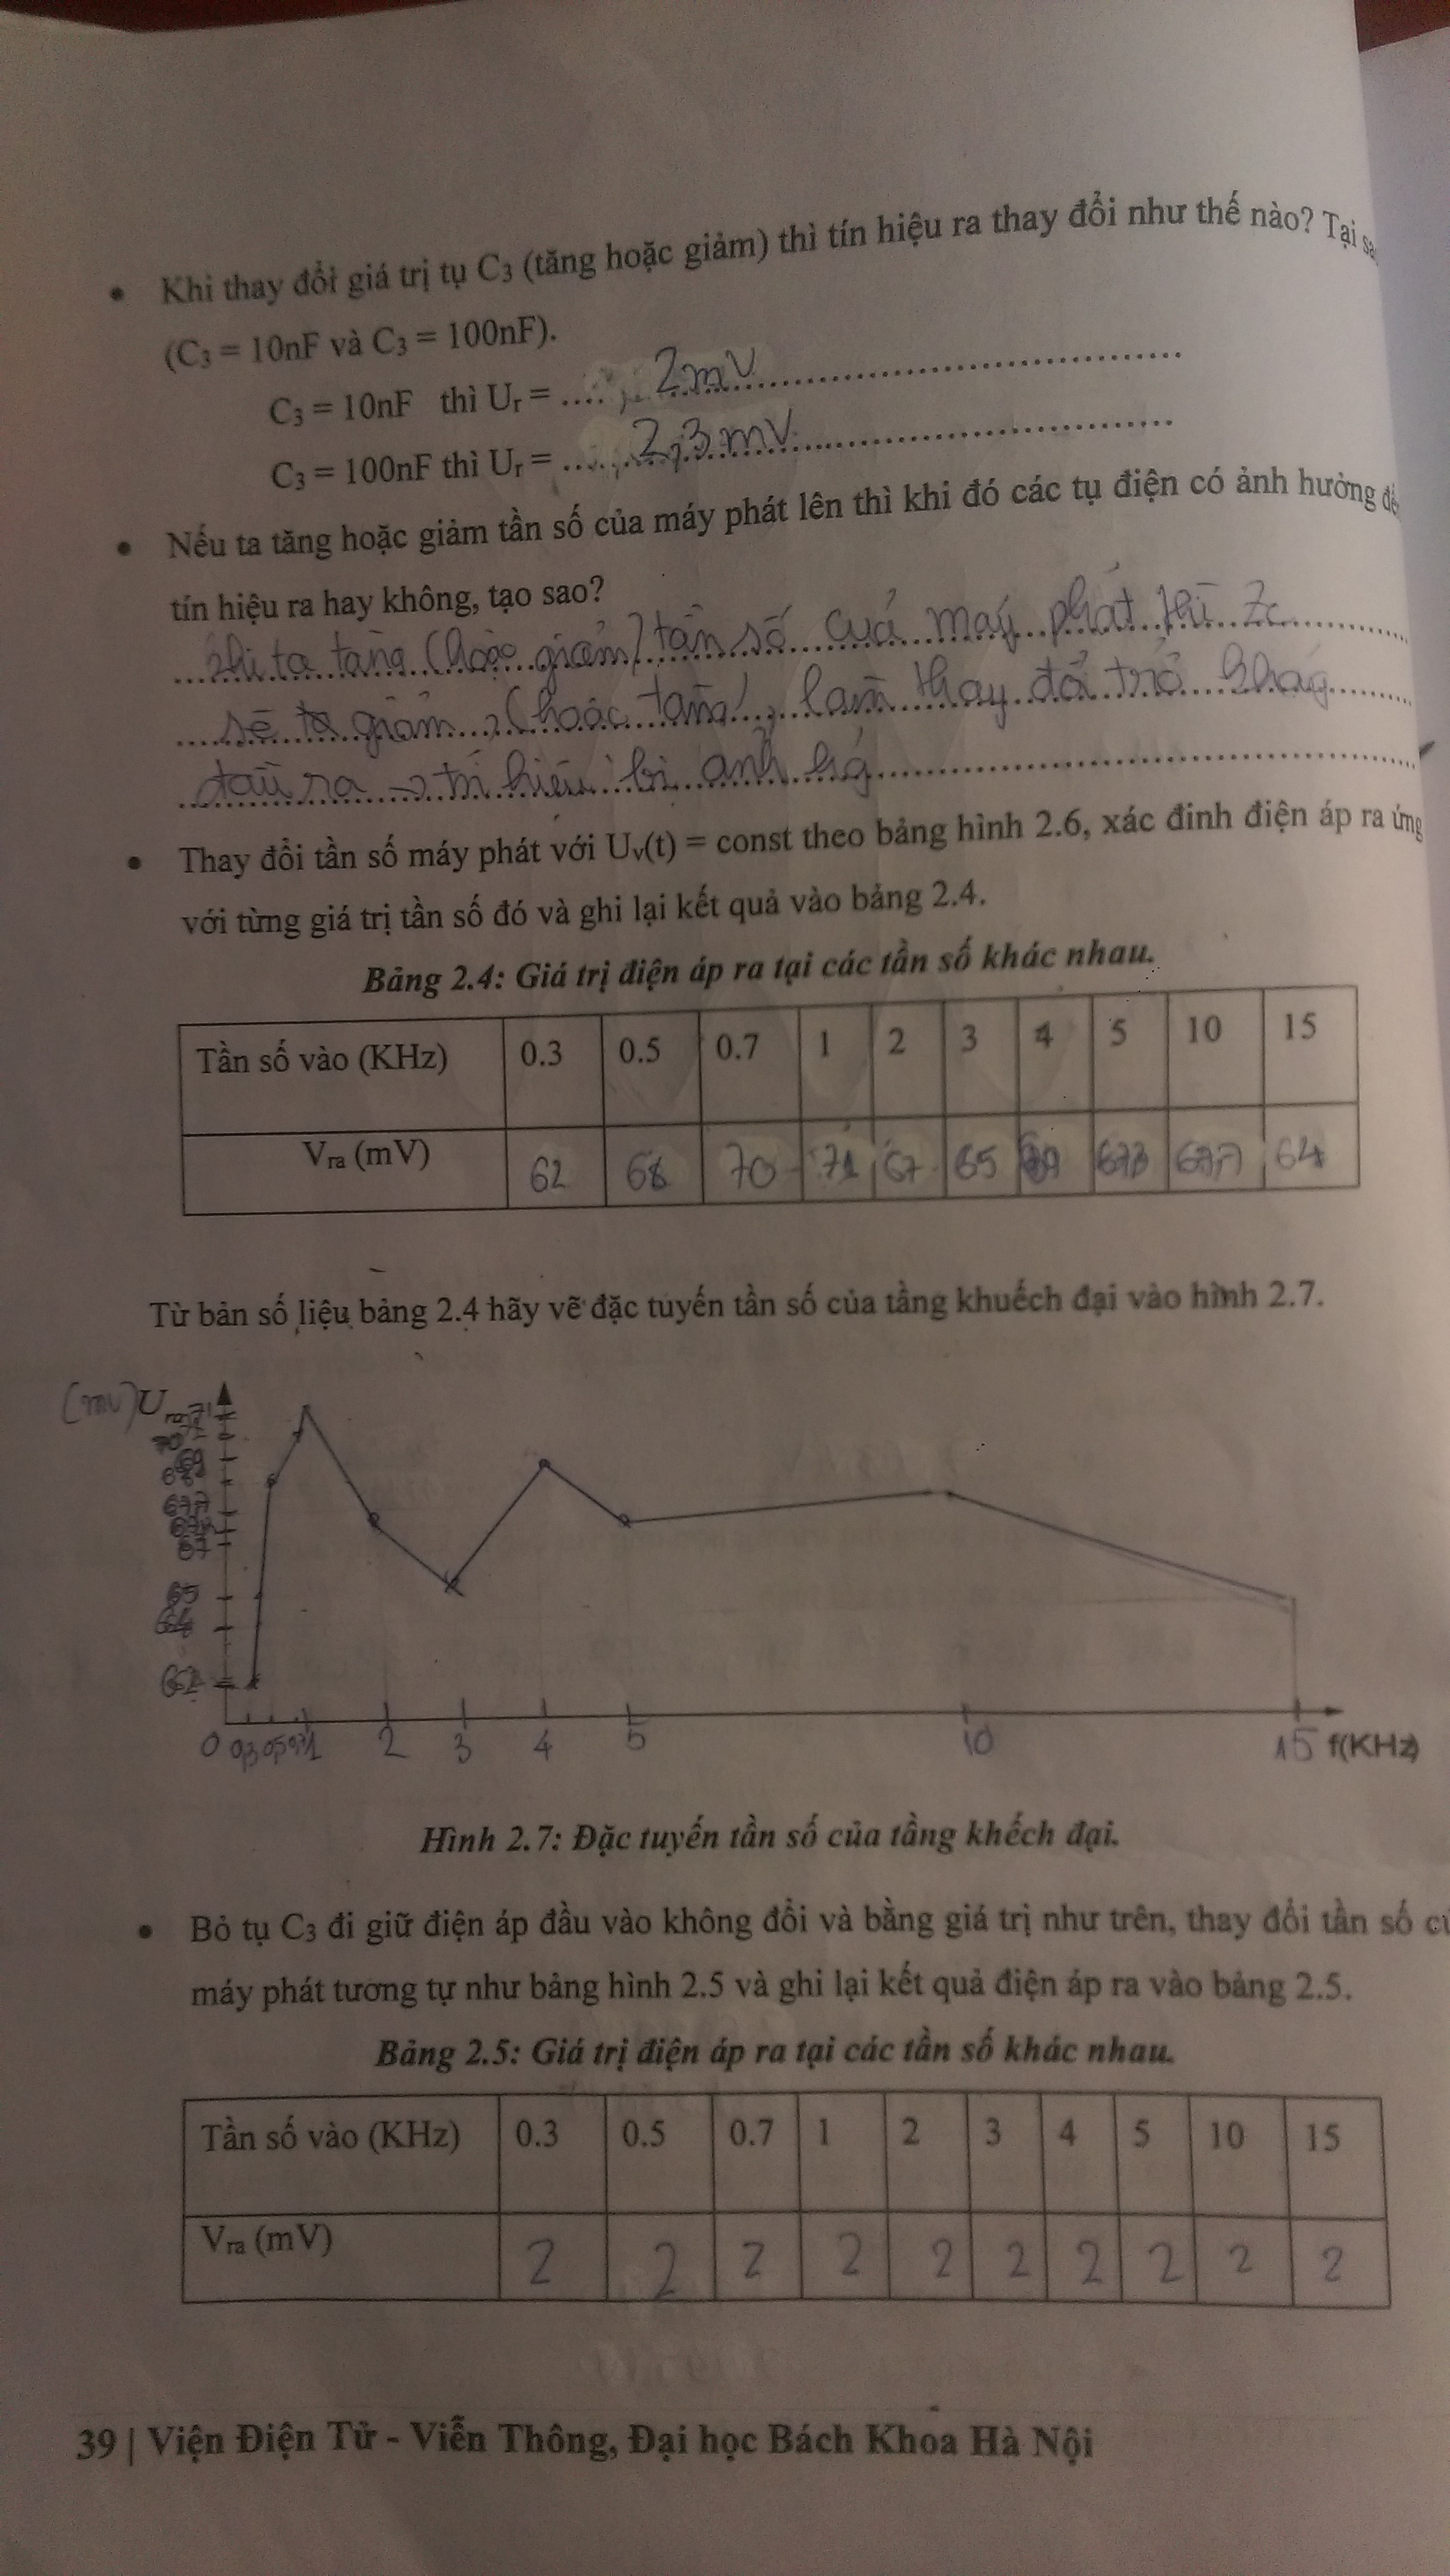 • Khi thay đổi giá trị tụ C₃ (tăng hoặc giảm) thì tín hiệu ra thay đổi như thế nào? Tại
(C₃ = 10nF và C₃ = 100nF).
C₃ = 10nF thì Uᵣ = .... 2mV
C₃ = 100nF thì Uᵣ = .... 2,3mV
• Nếu ta tăng hoặc giảm tần số của máy phát lên thì khi đó các tụ điện có ảnh hưởng
tín hiệu ra hay không, tạo sao?
khi ta tăng (hoặc giảm) tần số của máy phát thì Zc
sẽ giảm, (hoặc tăng), làm thay đổi trở kháng
đầu ra → tín hiệu bị ảnh hg
• Thay đổi tần số máy phát với Uᵥ(t) = const theo bảng hình 2.6, xác đinh điện áp ra ứng
với từng giá trị tần số đó và ghi lại kết quả vào bảng 2.4.
Bảng 2.4: Giá trị điện áp ra tại các tần số khác nhau.
Tần số vào (KHz) 0.3 0.5 0.7 1 2 3 4 5 10 15
Vra (mV) 62 68 70 71 67 65 64
Từ bản số liệu bảng 2.4 hãy vẽ đặc tuyến tần số của tầng khuếch đại vào hình 2.7.
(mV) Ura 71
70
69
68
67
65
64
62
0 0,3 0,5 0,7 1 2 3 4 5 10 15 f(KHz)
Hình 2.7: Đặc tuyến tần số của tầng khếch đại.
• Bỏ tụ C₃ đi giữ điện áp đầu vào không đổi và bằng giá trị như trên, thay đổi tần số
máy phát tương tự như bảng hình 2.5 và ghi lại kết quả điện áp ra vào bảng 2.5.
Bảng 2.5: Giá trị điện áp ra tại các tần số khác nhau.
Tần số vào (KHz) 0.3 0.5 0.7 1 2 3 4 5 10 15
Vra (mV) 2 2 2 2 2 2 2 2 2 2
39 | Viện Điện Tử - Viễn Thông, Đại học Bách Khoa Hà Nội